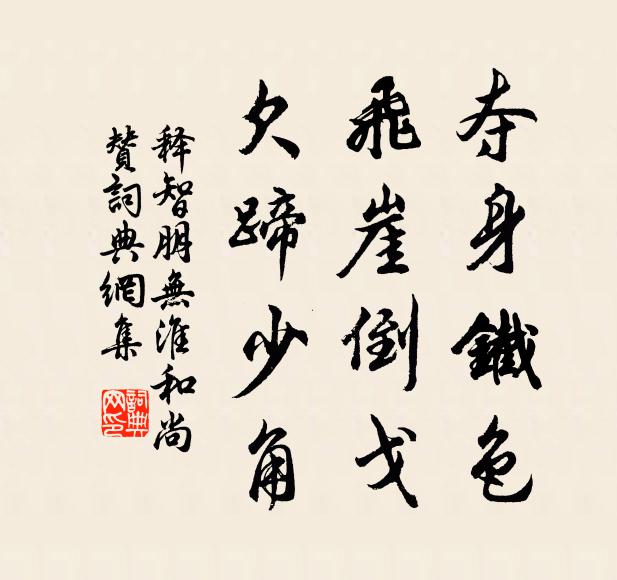 夺身鐵色
飛崖倒戈
欠蹄少角
释智朋無准和尚
贊詞典網集
詞典网印